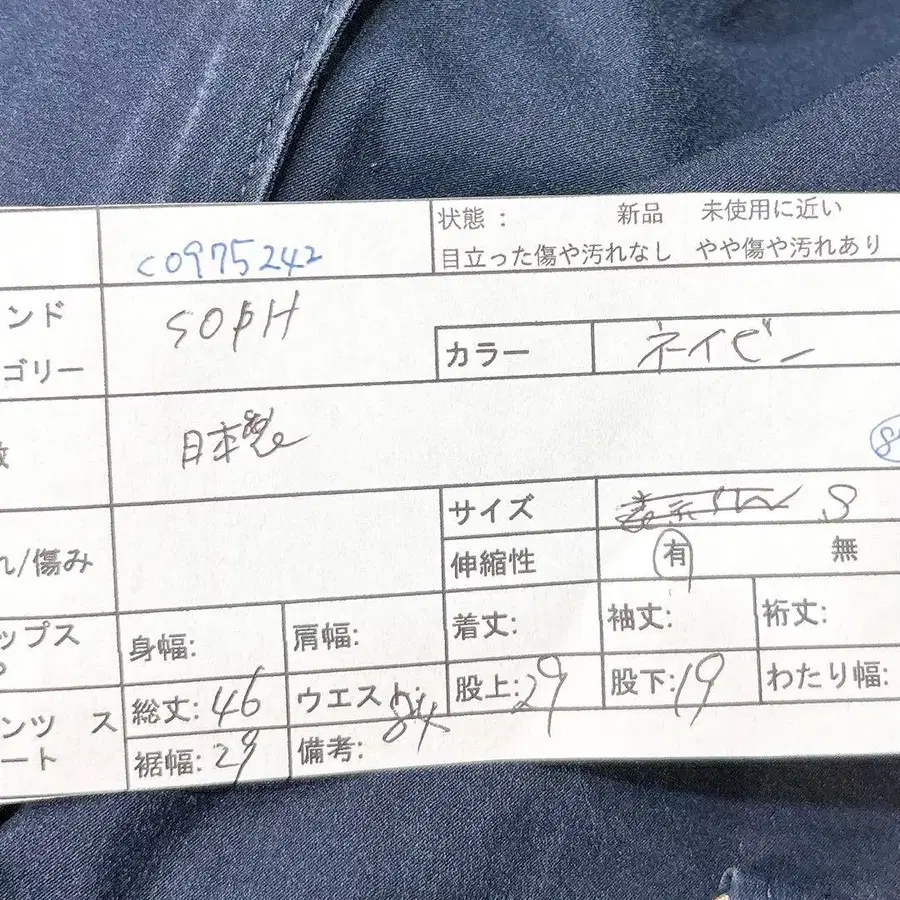 C0975242
状態： 新品 未使用に近い
目立った傷や汚れなし やや傷や汚れあり
ンド SOPH
ゴリー
カラー ネイビー
日本製
サイズ S
れ/傷み
伸縮性 有 無
ップス 身幅: 肩幅: 着丈: 袖丈: 裄丈:
ンツ ス 総丈: 46 ウエスト: 84 股上: 29 股下: 19 わたり幅:
ート 裾幅: 29 備考: